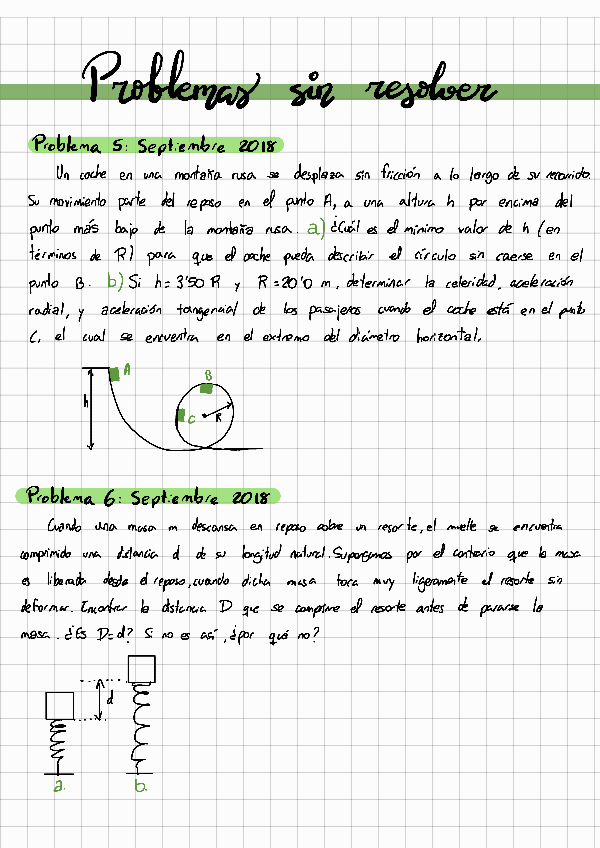 Problemas sin resolver
Problema 5: Septiembre 2018
Un coche en una montaña rusa se desplaza sin fricción a lo largo de su recorrido.
Su movimiento parte del reposo en el punto A, a una altura h por encima del
punto más bajo de la montaña rusa. a) ¿Cuál es el mínimo valor de h (en
términos de R) para que el coche pueda describir el círculo sin caerse en el
punto B. b) Si h = 3'50 R y R = 20'0 m, determinar la celeridad, aceleración
radial, y aceleración tangencial de los pasajeros cuando el coche está en el punto
C, el cual se encuentra en el extremo del diámetro horizontal.
A
B
h
C
R
Problema 6: Septiembre 2018
Cuando una masa m descansa en reposo sobre un resorte, el muelle se encuentra
comprimido una distancia d de su longitud natural. Supongamos por el contrario que la masa
es liberada desde el reposo, cuando dicha masa toca muy ligeramente el resorte sin
deformar. Encontrar la distancia D que se comprime el resorte antes de pararse la
masa. ¿Es D=d? Si no es así, ¿por qué no?
d
a.
b.